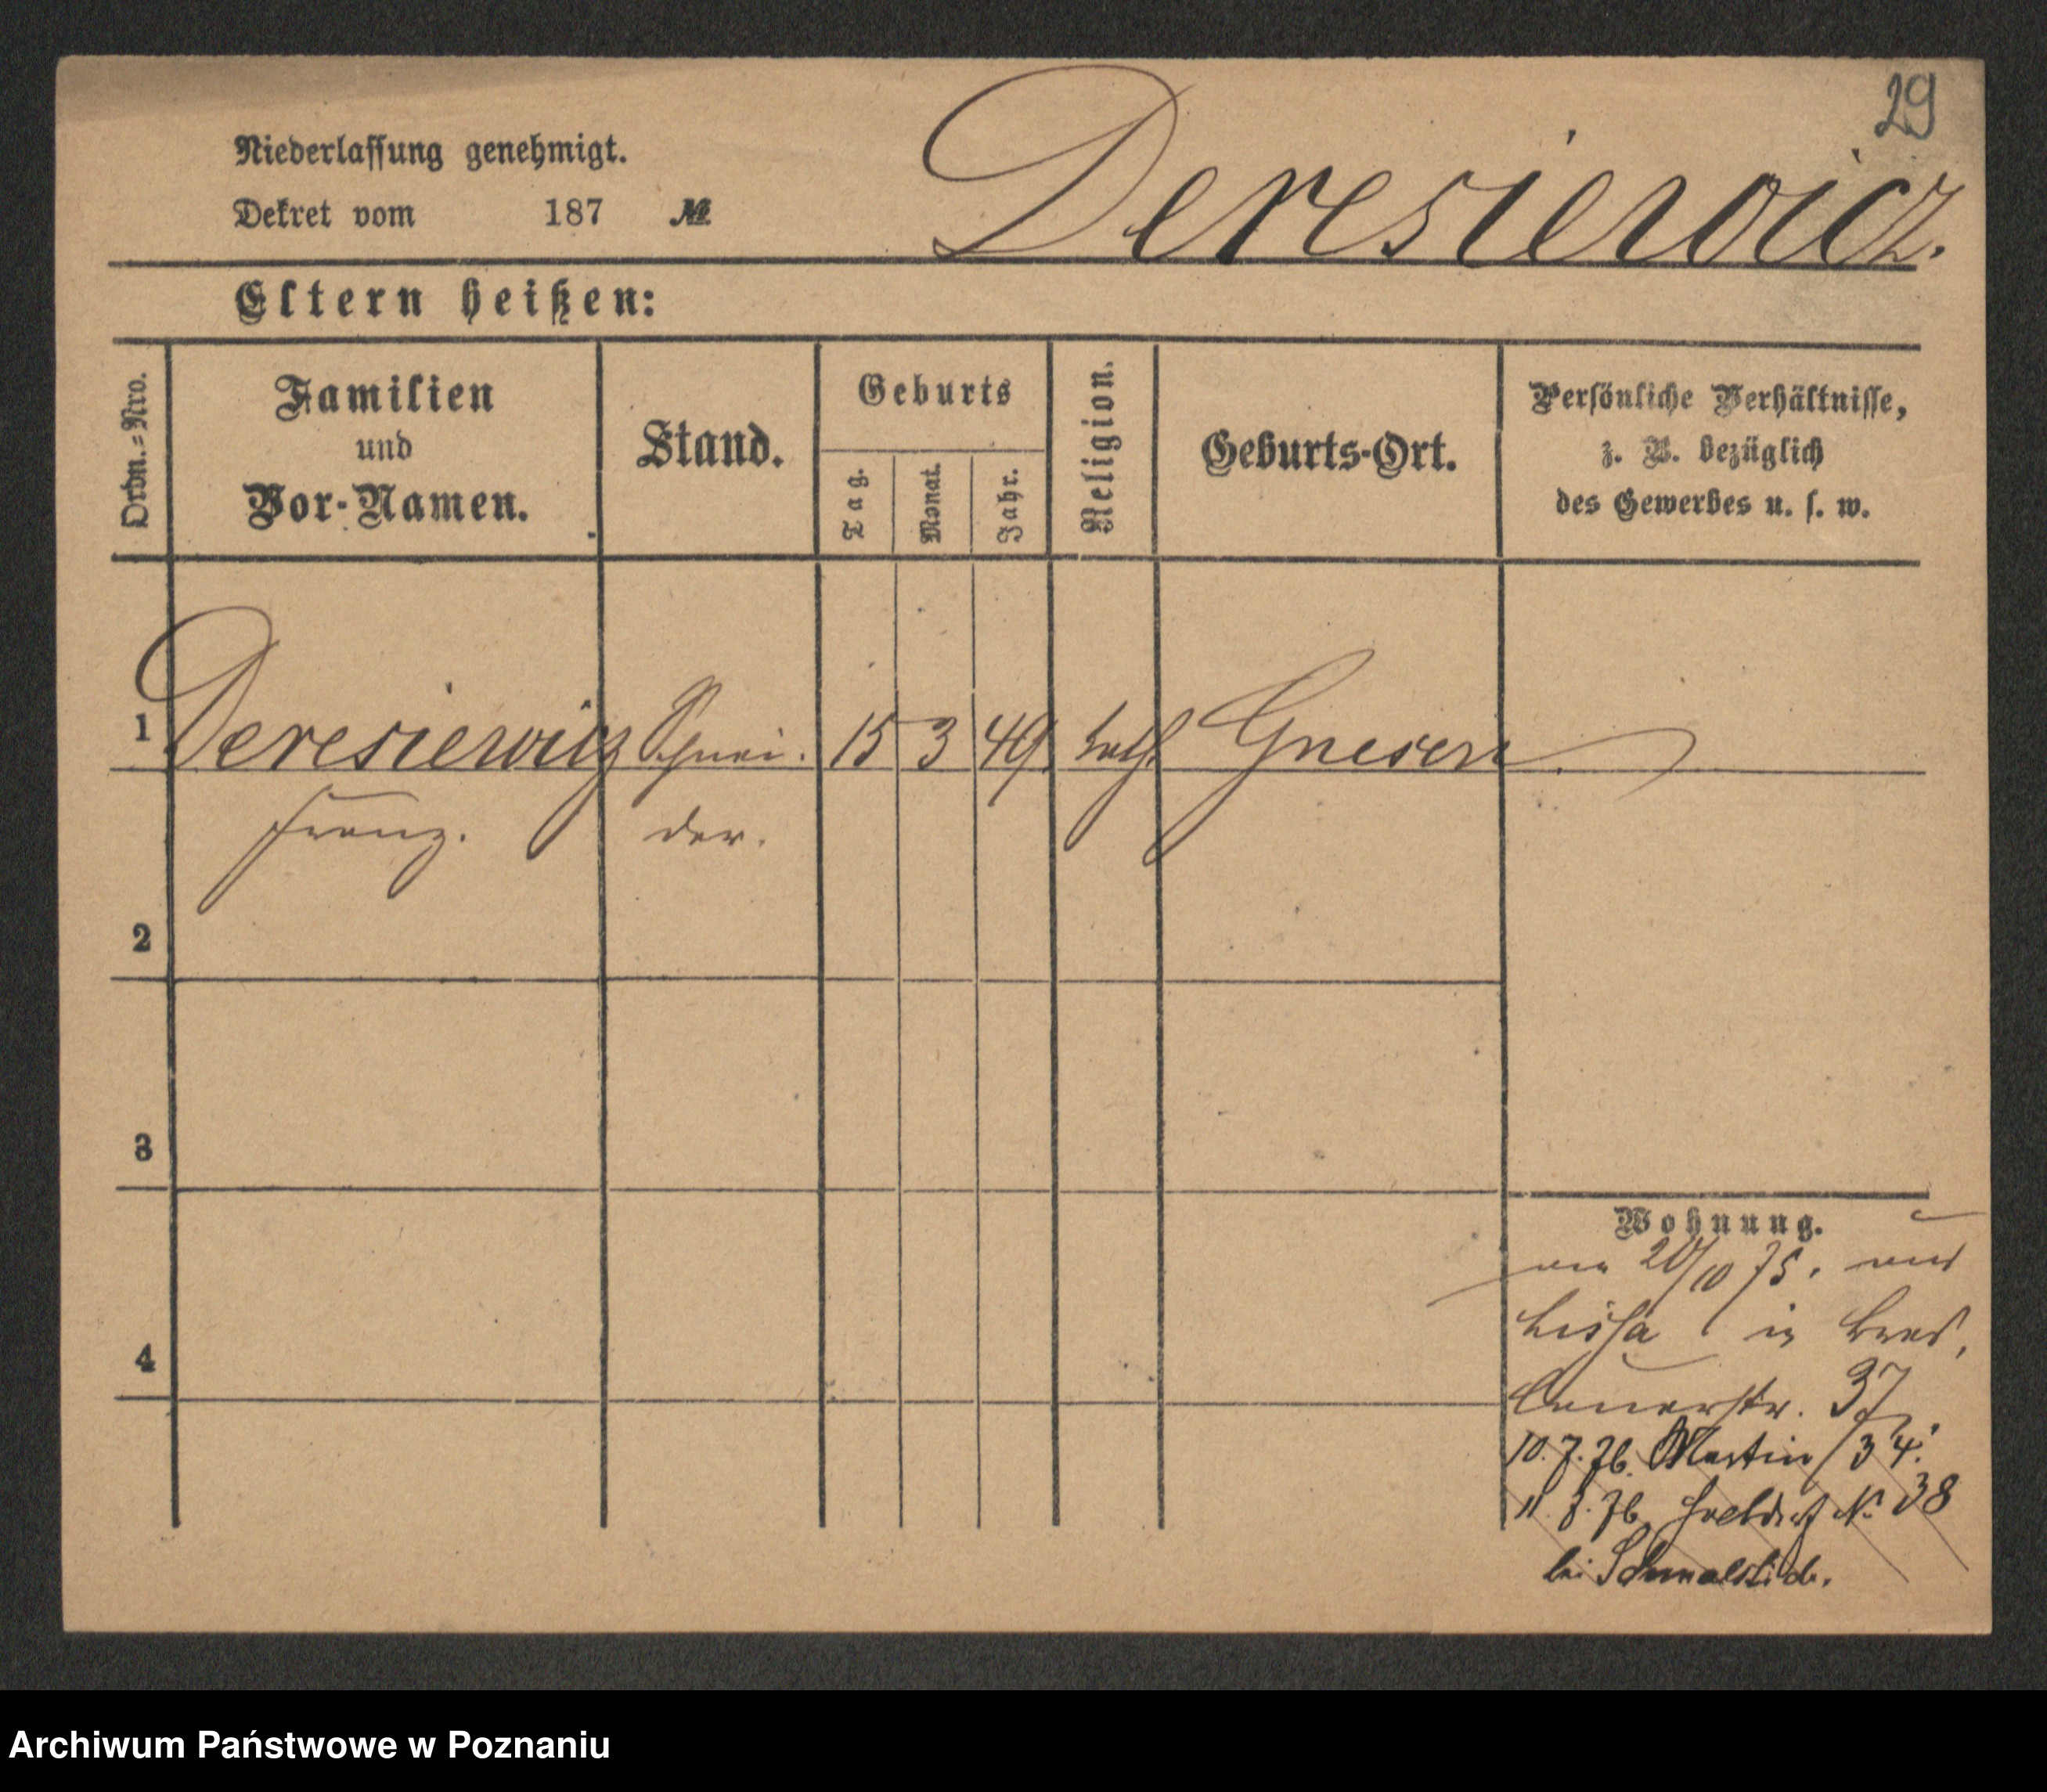 29
Niederlassung genehmigt.
Deresiewicz.
Dekret vom 187 №
Eltern heißen:
Ordn.=Nro.
Familien
und
Vor-Namen.
Stand.
Geburts
Tag.
Monat.
Jahr.
Religion.
Geburts-Ort.
Persönliche Verhältnisse,
z. B. bezüglich
des Gewerbes u. s. w.
1 Deresiewicz Schnei. 15 3 49. kath Gnesen
Franz. der.
2
3
4
Wohnung.
20/10 75.
Lissa in
37.
10. 7. 76. Martin 34.
11. 7. 76. № 38
bei
Archiwum Państwowe w Poznaniu